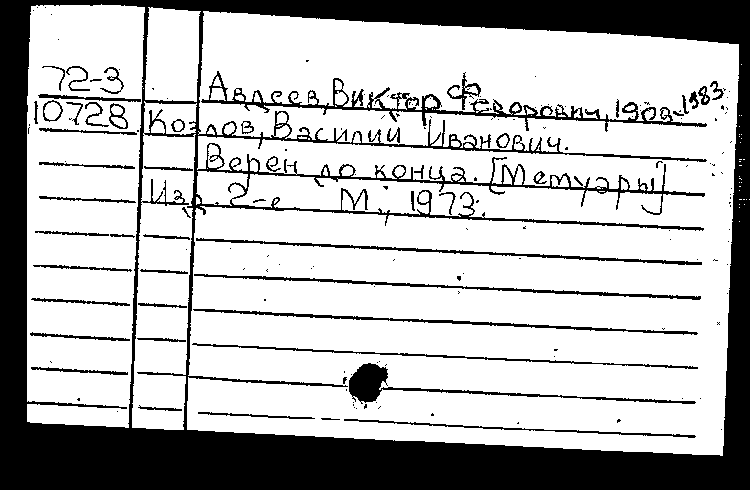 72-3 Авдеев, Виктор Федорович, 1902-1983
10728 Козлов, Василий Иванович.
Верен до конца. [Мемуары]
Изд. 2-е. М., 1973.